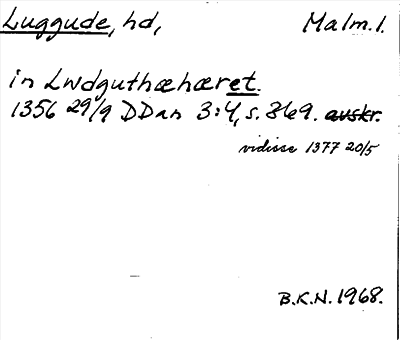 Luggude, hd, Malm. l.
in Lwdguthæhæret.
1356 29/9 DDan 3:4, s. 369. avskr.
vidisse 1377 20/5
B.K.N. 1968.